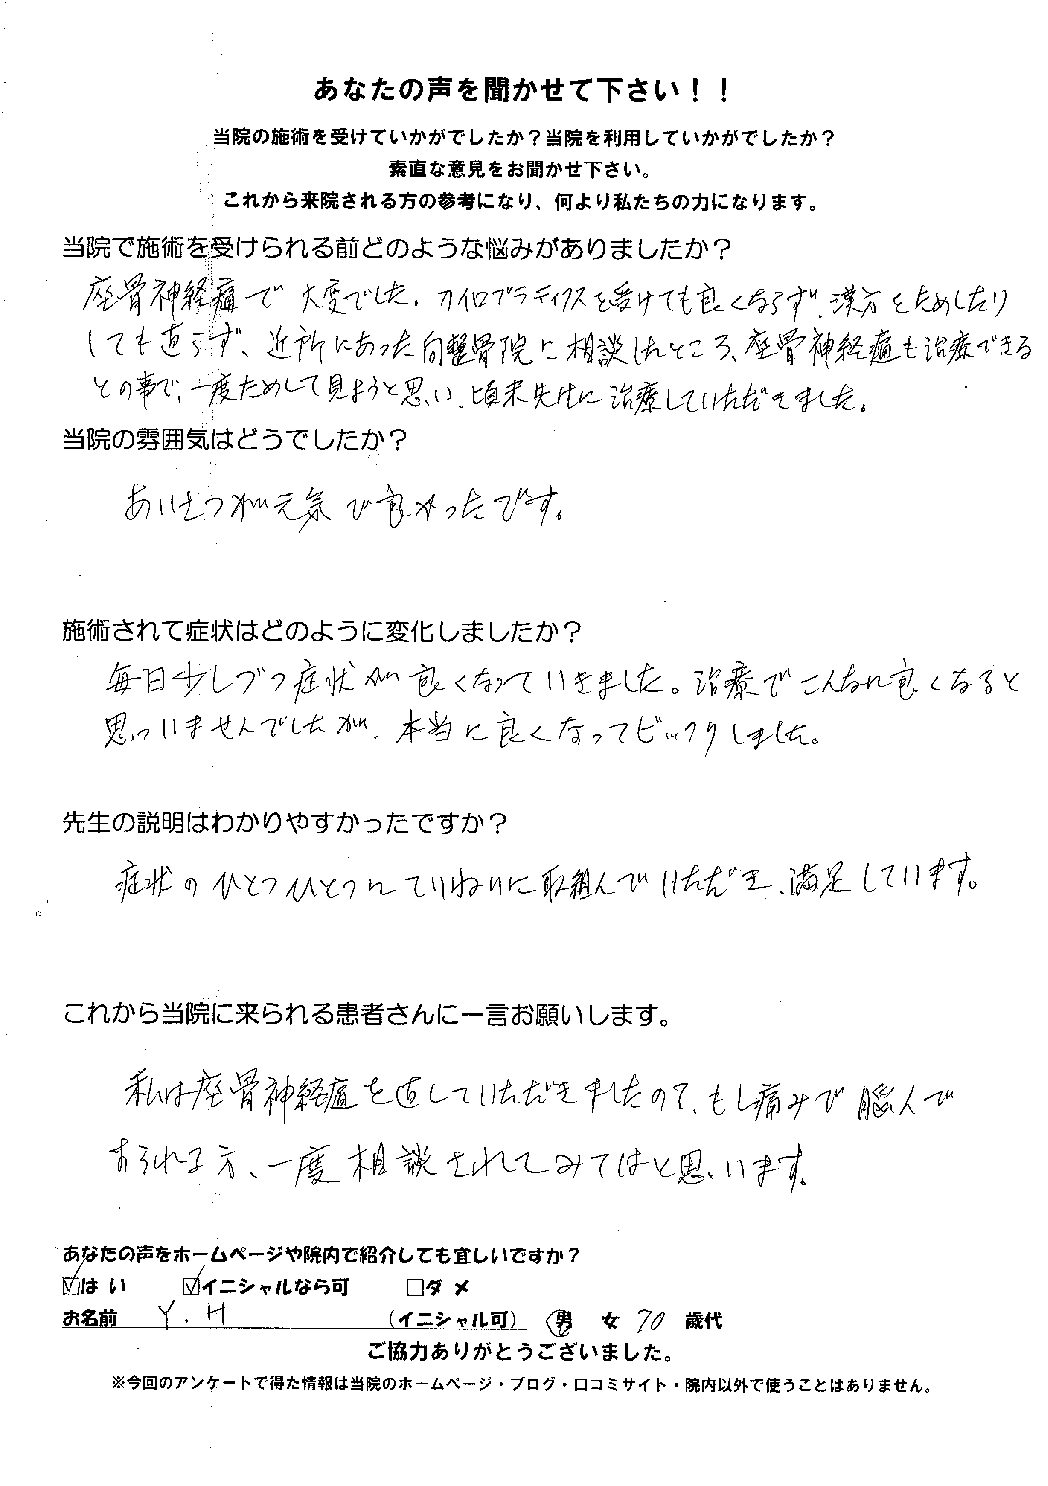 あなたの声を聞かせて下さい！！
当院の施術を受けていかがでしたか？当院を利用していかがでしたか？
素直な意見をお聞かせ下さい。
これから来院される方の参考になり、何より私たちの力になります。
当院で施術を受けられる前どのような悩みがありましたか？
座骨神経痛で大変でした。カイロプラティクスを受けても良くならず、漢方をためしたり
しても直らず、近所にあった向整骨院に相談したところ、座骨神経痛も治療できる
との事で、一度ためして見ようと思い、頃末先生に治療していただきました。
当院の雰囲気はどうでしたか？
あいさつが元気で良かったです。
施術されて症状はどのように変化しましたか？
毎日少しづつ症状が良くなっていきました。治療でこんなに良くなると
思っいませんでしたが、本当に良くなってビックリしました。
先生の説明はわかりやすかったですか？
症状のひとつひとつにていねいに取組んでいただき、満足しています。
これから当院に来られる患者さんに一言お願いします。
私は座骨神経痛を直していただきましたので、もし痛みで脳んで
おられる方、一度相談されてみてはと思います。
あなたの声をホームページや院内で紹介しても宜しいですか？
☑はい ☑イニシャルなら可 □ダメ
お名前 Y.H (イニシャル可) 男 女 70 歳代
ご協力ありがとうございました。
※今回のアンケートで得た情報は当院のホームページ・ブログ・口コミサイト・院内以外で使うことはありません。